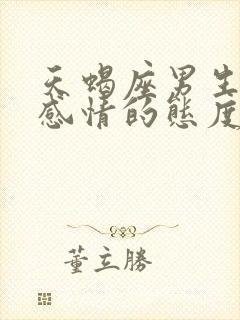 天蝎座男生
感情的態度
董立勝